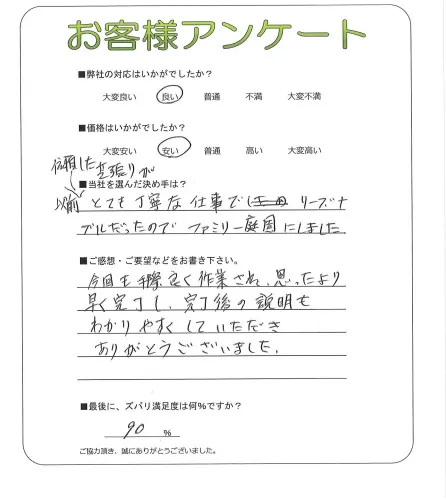 お客様アンケート
■弊社の対応はいかがでしたか？
大変良い 良い 普通 不満 大変不満
■価格はいかがでしたか？
大変安い 安い 普通 高い 大変高い
依頼した芝張りが
■当社を選んだ決め手は？
以前 とても丁寧な仕事で リーズナ
ブルだったので ファミリー庭園にしました
■ご感想・ご要望などをお書き下さい。
今回も手際良く作業され、思ったより
早く完了し、完了後の説明も
わかりやすくしていただき
ありがとうございました。
■最後に、ズバリ満足度は何％ですか？
90 ％
ご協力頂き、誠にありがとうございました。